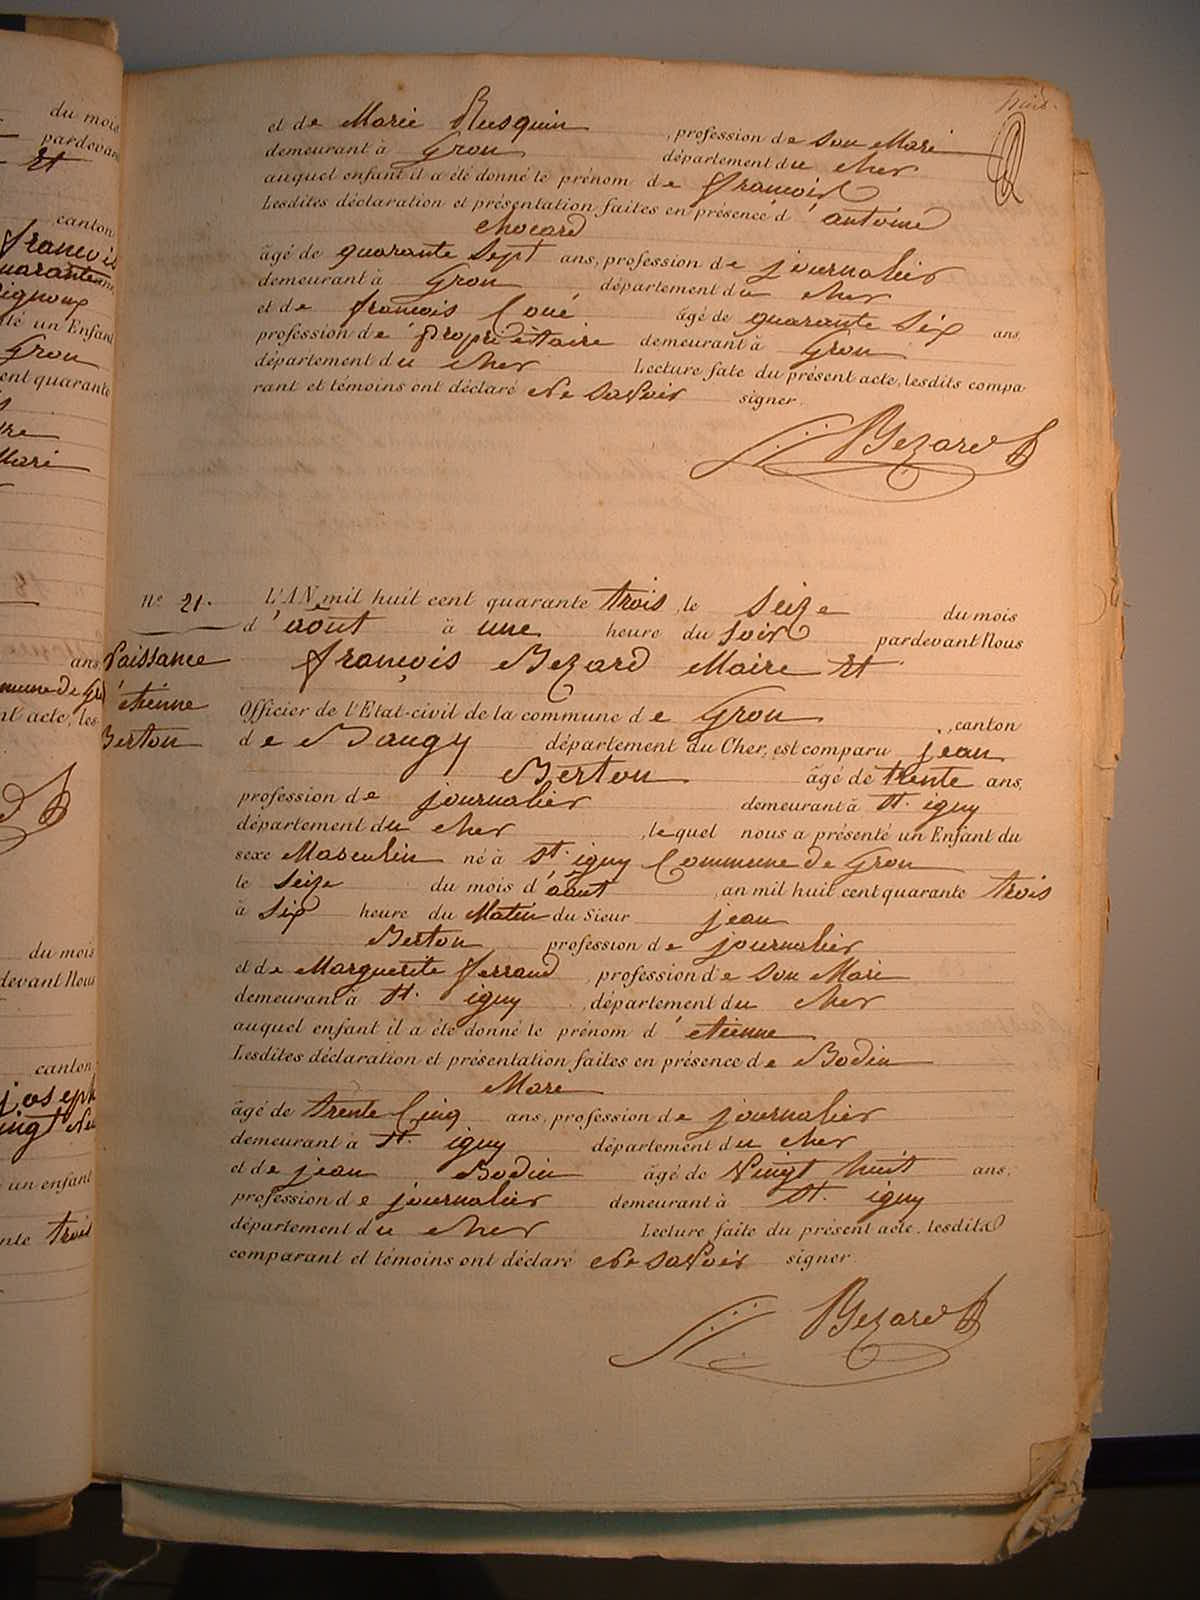 huit.
et de Marie Rusquin, profession de son Mari
demeurant à Gron département du cher
auquel enfant il a été donné le prénom de françois
Lesdites déclaration et présentation faites en présence d'antoine
chocard
âgé de quarante sept ans, profession de journalier
demeurant à Gron département du cher
et de françois Coué âgé de quarante Six ans,
profession de propriétaire demeurant à Gron
département du cher Lecture fate du présent acte, lesdits compa
rant et témoins ont déclaré Ne savoir signer.
Bezard
n° 21.
Naissance
étienne
Berton
L'AN mil huit cent quarante trois, le Seize du mois
d'août à une heure du soir pardevant Nous
françois Bezard Maire Et
Officier de l'Etat-civil de la commune de Gron, canton
de Baugy département du Cher, est comparu jean
Berton âgé de trente ans,
profession de journalier demeurant à St. iguy
département du cher, lequel nous a présenté un Enfant du
sexe Masculin né à St. iguy Commune de Gron
le Seize du mois d'août, an mil huit cent quarante trois
à Six heure du Matin du Sieur jean
Berton profession de journalier
et de Marguerite ferrand, profession de son Mari
demeurant à St. iguy, département du cher
auquel enfant il a été donné le prénom d'etienne
Lesdites déclaration et présentation faites en présence de Bodin
Marc
âgé de trente Cinq ans, profession de journalier
demeurant à St. iguy département du cher
et de jean Bodin âgé de Vingt huit ans,
profession de journalier demeurant à St. iguy
département du cher Lecture faite du présent acte, lesdits
comparant et témoins ont déclaré Ne savoir signer.
Bezard